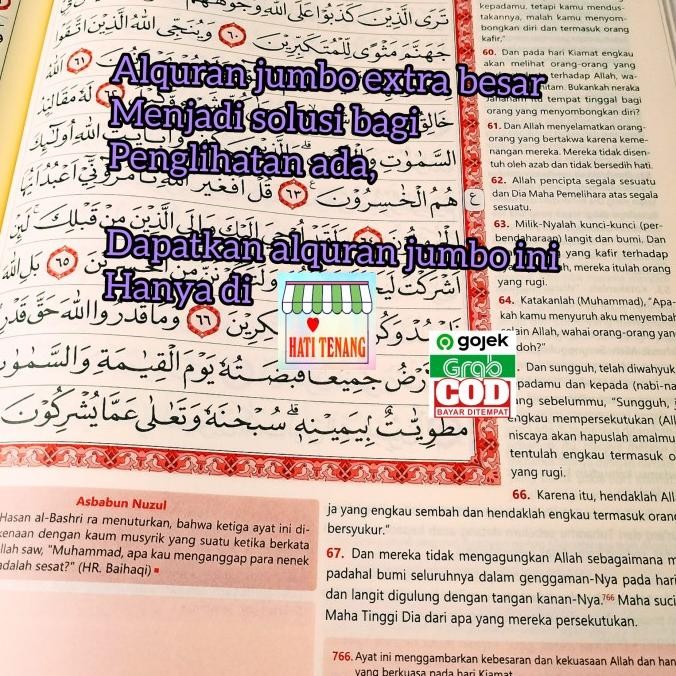 تَرَى الَّذِيْنَ كَذَبُوْا عَلَى اللّٰهِ وُجُوْهُهُمْ
جَهَنَّمَ مَثْوًى لِّلْمُتَكَبِّرِيْنَ ٦٠ وَيُنَجِّى اللّٰهُ الَّذِيْنَ اتَّقَوْا
٦١ اَللّٰهُ
خَالِقُ
٦٢ لَهٗ مَقَالِيْدُ
السَّمٰوٰتِ
بِاٰيٰتِ اللّٰهِ اُولٰۤىِٕكَ
هُمُ الْخٰسِرُوْنَ ٦٣ قُلْ اَفَغَيْرَ اللّٰهِ تَأْمُرُوْۤنِّيْۤ اَعْبُدُ اَيُّهَا
اِلَيْكَ وَاِلَى الَّذِيْنَ مِنْ قَبْلِكَ لَىِٕنْ
اَشْرَكْتَ
٦٥ بَلِ اللّٰهَ
٦٦ وَمَا قَدَرُوا اللّٰهَ حَقَّ قَدْرِهٖ
جَمِيْعًا قَبْضَتُهٗ يَوْمَ الْقِيٰمَةِ وَالسَّمٰوٰتُ
مَطْوِيّٰتٌۢ بِيَمِيْنِهٖ ۗسُبْحٰنَهٗ وَتَعٰلٰى عَمَّا يُشْرِكُوْنَ
ع
Alquran jumbo extra besar
Menjadi solusi bagi
Penglihatan ada,
Dapatkan alquran jumbo ini
Hanya di
HATI TENANG
gojek
Grab
COD
BAYAR DITEMPAT
kepadamu, tetapi kamu mendus-
takannya, malah kamu menyom-
bongkan diri dan termasuk orang
kafir."
60. Dan pada hari Kiamat engkau
akan melihat orang-orang yang
terhadap Allah, wa-
hitam. Bukankah neraka
Jahanam itu tempat tinggal bagi
orang yang menyombongkan diri?
61. Dan Allah menyelamatkan orang-
orang yang bertakwa karena keme-
nangan mereka. Mereka tidak disen-
tuh oleh azab dan tidak bersedih hati.
62. Allah pencipta segala sesuatu
dan Dia Maha Pemelihara atas segala
sesuatu.
63. Milik-Nyalah kunci-kunci (per-
bendaharaan) langit dan bumi. Dan
yang kafir terhadap
h, mereka itulah orang
yang rugi.
64. Katakanlah (Muhammad), "Apa-
kah kamu menyuruh aku menyembah
selain Allah, wahai orang-orang yang
doh?"
. Dan sungguh, telah diwahyuk
padamu dan kepada (nabi-na
ng sebelummu, "Sungguh, j
engkau mempersekutukan (All
niscaya akan hapuslah amalmu
tentulah engkau termasuk o
yang rugi.
66. Karena itu, hendaklah All
ja yang engkau sembah dan hendaklah engkau termasuk orang
bersyukur."
67. Dan mereka tidak mengagungkan Allah sebagaimana m
padahal bumi seluruhnya dalam genggaman-Nya pada hari
dan langit digulung dengan tangan kanan-Nya.766 Maha suci
Maha Tinggi Dia dari apa yang mereka persekutukan.
766. Ayat ini menggambarkan kebesaran dan kekuasaan Allah dan han
yang berkuasa pada hari Kiamat.
Asbabun Nuzul
Hasan al-Bashri ra menuturkan, bahwa ketiga ayat ini di-
kenaan dengan kaum musyrik yang suatu ketika berkata
llah saw, "Muhammad, apa kau menganggap para nenek
adalah sesat?" (HR. Baihaqi)